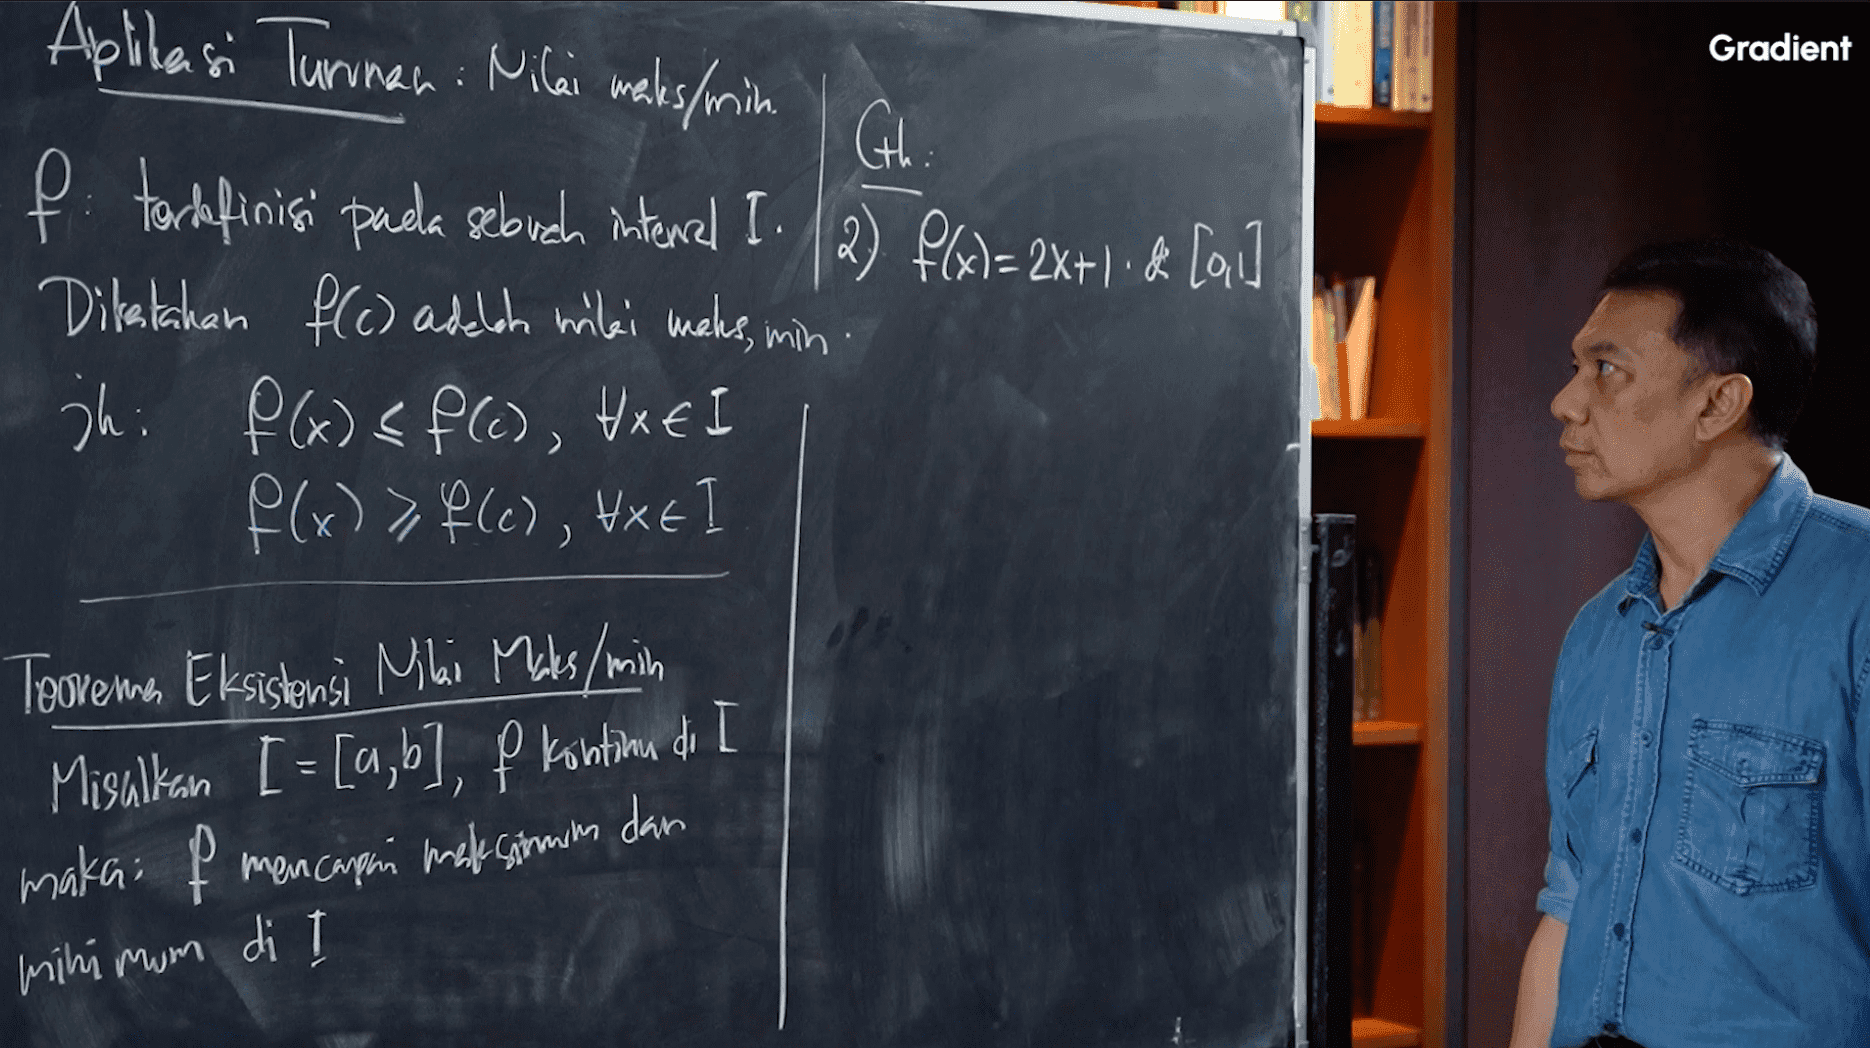 Aplikasi Turunan : Nilai maks/min.
f : terdefinisi pada sebuah interval I.
Dikatakan f(c) adalah nilai maks, min.
jk : f(x) ≤ f(c), ∀x ∈ I
f(x) ≥ f(c), ∀x ∈ I
Teorema Eksistensi Nilai Maks/min
Misalkan I = [a,b], f kontinu di I
maka: f mencapai maksimum dan
minimum di I
Cth :
2) f(x) = 2x+1. & [0,1]
Gradient